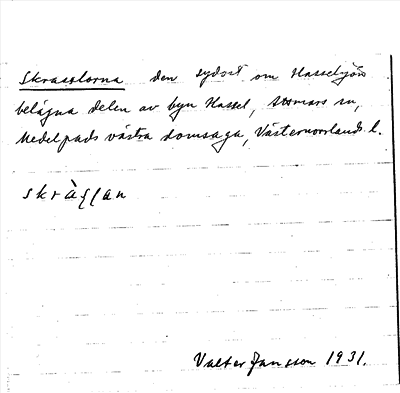 Skrasslorna den sydost om Hasselsjön
belägna delen av byn Hassel, sn,
Medelpads västra domsaga, Västernorrlands l.
skràʃʃan
Valter Jansson 1931.